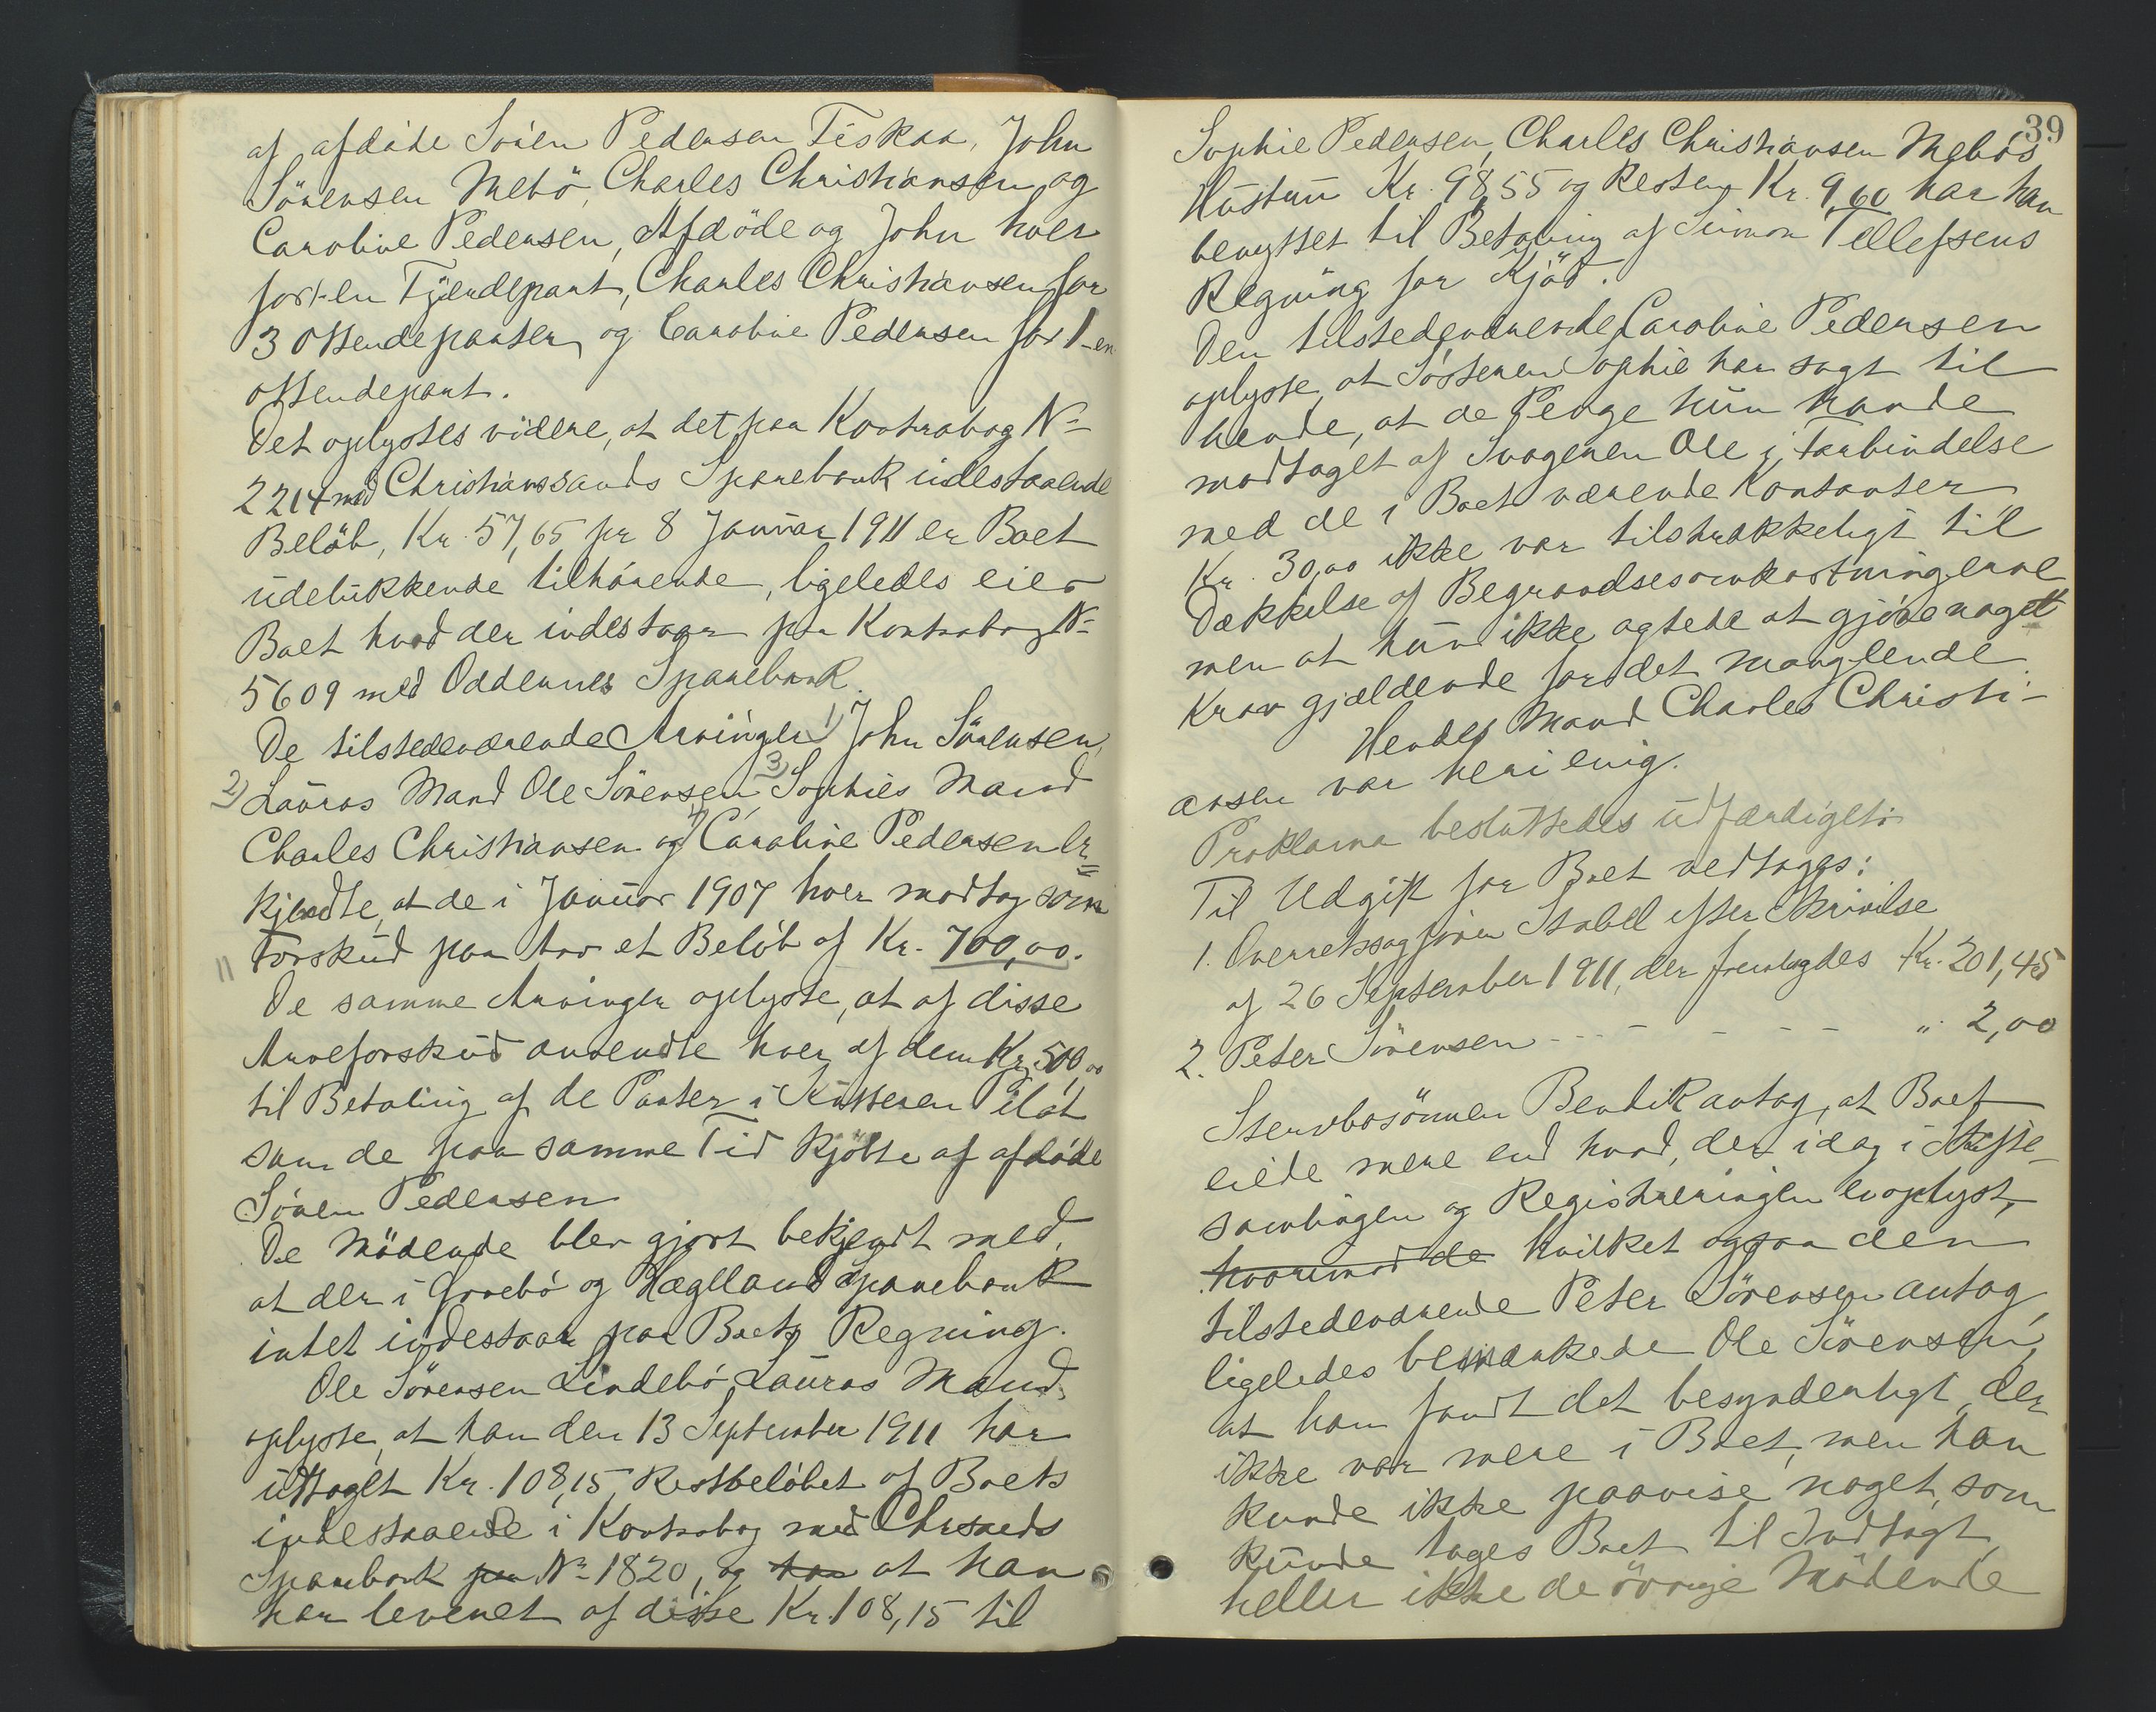 af afdöde Sören Pedersen Fiskaa, John
Sörensen Mebö, Charles Christiansen og
Caroline Pedersen, Afdöde og John hver
for 1-en Fjerdepart, Charles Christiansen for
3 Ottendeparter og Caroline Pedersen for 1-en
Ottendepart.
Det oplystes videre, at det paa Kontrabog No
2214 med Christianssands Sparebank indestaaende
Belöb, Kr. 57,65 pr 8 Januar 1911 er Boet
udelukkende tilhörende, ligeledes eier
Boet hvad der indestaar paa Kontrabog No
5609 med Oddernes Sparebank.
De tilstedeværende Arvinger 1) John Sörensen,
2) Lauras Mand Ole Sörensen, 3) Sophies Mand
Charles Christiansen og 4) Caroline Pedersen er=
kjendte, at de i Januar 1907 hver modtog som
Forskud paa Arv et Belöb af Kr. 700,00.
De samme Arvinger oplyste, at af disse
Arveforskud anvendte hver af dem Kr. 500,00
til Betaling af de Parter i Kutteren Pilot
som de paa samme Tid kjöbte af afdöde
Sören Pedersen
De Mödende blev gjort bekjendt med,
at der i Grovebö og Hægeland Sparebank
intet indestaar paa Boets Regning.
Ole Sörensen Lindebö, Lauras Mand,
oplyste, at han den 13 September 1911 har
uttaget Kr. 108,15, Restbelöbet af Boets
indestaaende i Kontrabog med Chrsands
Sparebank paa No 1820, og har at han
har leveret af disse Kr. 108,15 til
39
Sophie Pedersen, Charles Christiansen Mebös
Hustru Kr. 98,55 og Resten Kr. 9,60 har han
benyttet til Betaling af Simon Tellefsens
Regning for Kjöd.
Den tilstedeværende Caroline Pedersen
oplyste, at Sösteren Sophie har sagt til
hende, at de Penge hun havde
modtaget af Svogeren Ole i Forbindelse
med de i Boet værende Kontanter
Kr. 30,00 ikke var tilstrækkeligt til
Dækkelse af Begravelsesomkostningerne
men at hun ikke agtede at gjöre noget
Krav gjældende for det manglende
Hendes Mand Charles Christi-
ansen var heri enig.
Proklama besluttedes udfærdiget.
Til Udgift for Boet vedtages:
1. Overretssagförer Stabel efter Skrivelse
af 26 September 1911, der fremlagdes Kr. 201,45
2. Peter Sörensen - - - - - - - „ 2,00
Stervbosönnen Bendik antog, at Boet
eiede mere end hvad, der idag i Skifte-
samlingen og Registreringen er oplyst,
hvorimod de hvilket ogsaa den
tilstedeværende Peter Sörensen antog,
ligeledes bemærkede Ole Sörensen,
at han fandt det besynderligt, der
ikke var mere i Boet, men han
kunde ikke paavise noget, som
kunde tages Boet til Indtægt,
heller ikke de övrige Mödende